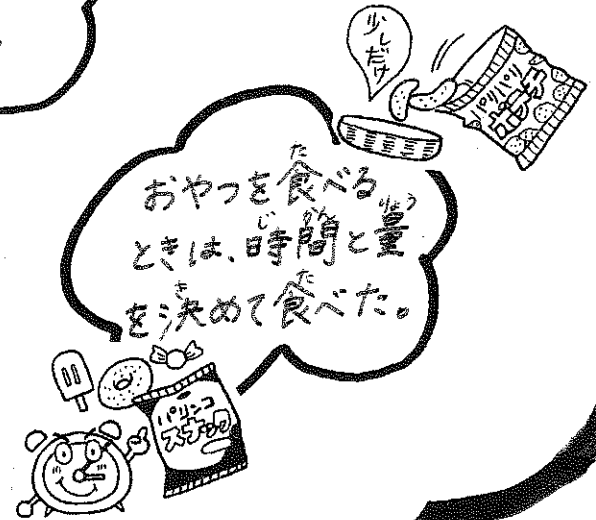 少しだけ
パリパリ
ポテチ
おやつを食べる
ときは、時間と量
を決めて食べた。
パリンコ
スナック